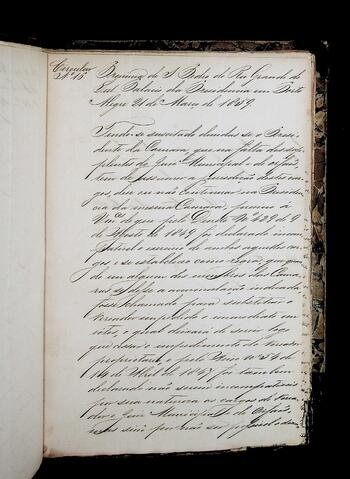 Circular
Nº 15
Provincia de S. Pedro do Rio Grande do
Sul Palacio da Presidencia em Porto
Alegre 21 de Março de 1859.
Tendo-se suscitado duvidas se o Presi-
dente da Camara, que na falta dos sup-
plentes do Juiz Municipal e de orfãos,
tem de assumir a jurisdição destes car-
gos, deve ou não continuar na Presiden-
cia da mesma Camara, previno a
Vmces de que pelo Decreto Nº 429 de 9
de Agosto de 1849 foi declarado incom-
pativel o exercicio de ambos aquelles car-
gos e se estabeleceo como regra, que quan-
do em algum dos membros das Cama-
ras se désse a accumulação indicada
fosse chamado para substituir o
Vereador impedido o immediato em
votos, o qual deixará de servir logo
que cesse o impedimento do Vereador
proprietario, e pelo Aviso Nº 56 de
de Abril de 1847 foi tambem
declarado não serem incompativeis
por sua natureza os cargos de Verea-
dor e Juiz Municipal e de Orfãos,
e sim por não ser possivel o